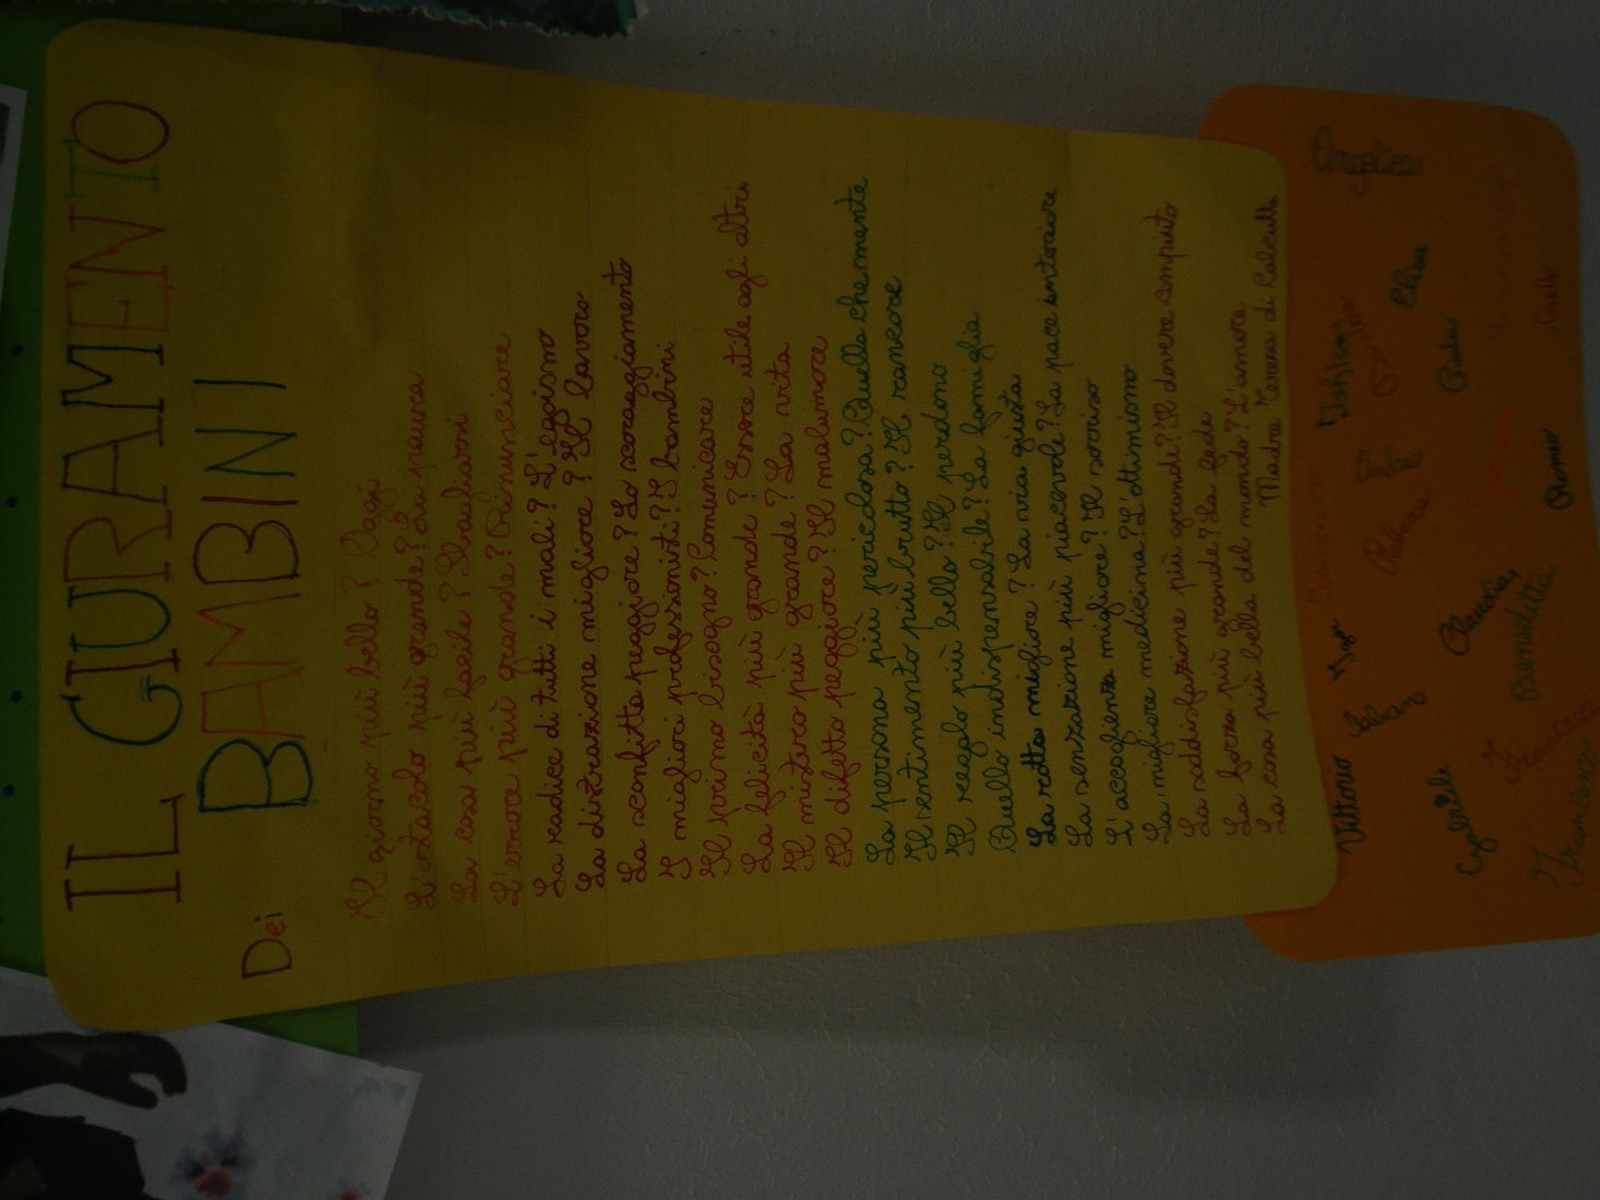 IL GIURAMENTO
Dei BAMBINI
Il giorno più bello? Oggi
L'ostacolo più grande? La paura
La cosa più facile? Sbagliarsi
L'errore più grande? Rinunciare
La radice di tutti i mali? L'egoismo
La distrazione migliore? Il lavoro
La sconfitta peggiore? Lo scoraggiamento
I migliori professionisti? I bambini
Il primo bisogno? Comunicare
La felicità più grande? Essere utile agli altri
Il mistero più grande? La vita
Il difetto peggiore? Il malumore
La persona più pericolosa? Quella che mente
Il sentimento più brutto? Il rancore
Il regalo più bello? Il perdono
Quello indispensabile? La famiglia
La rotta migliore? La via giusta
La sensazione più piacevole? La pace interiore
L'accoglienza migliore? Il sorriso
La migliore medicina? L'ottimismo
La soddisfazione più grande? Il dovere compiuto
La forza più grande? La fede
La cosa più bella del mondo? L'amore
Madre Teresa di Calcutta
Angelica
Elisa
Paola
Carlo
Andrea
Romeo
Claudia
Benedetta
Vittorio
Gabriele
Francesca
Francesco